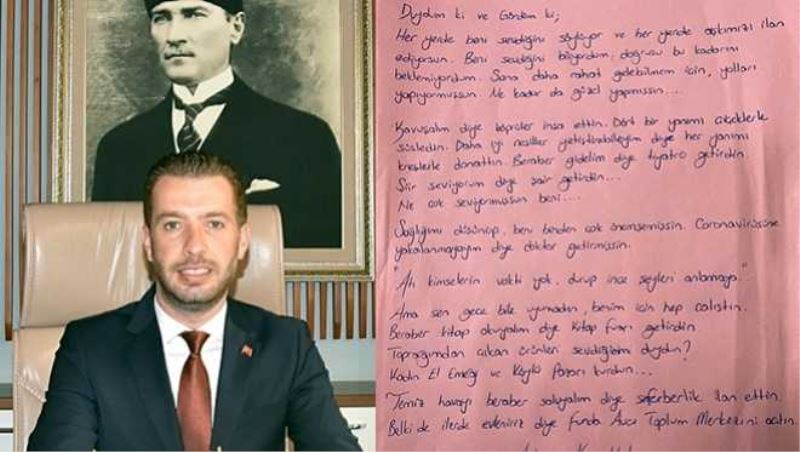 Duydum ki ve Gördüm ki;
Her yerde beni sevdiğini söylüyor ve her yerde aşkımızı ilan
ediyorsun. Beni sevdiğini biliyordum, doğrusu bu kadarını
beklemiyordum. Sana daha rahat gelebilmem için, yolları
yapıyormuşsun. Ne kadar da güzel yapmışsın...
Kavuşalım diye köprüler inşa ettin. Dört bir yanımı çiçeklerle
süsledin. Daha iyi nesiller yetiştirebileyim diye her yanımı
kreşlerle donattın. Beraber gidelim diye tiyatro getirdin
Şiir seviyorum diye şair getirdin...
Ne çok seviyormuşsun beni...
Sağlığımı düşünüp, beni benden çok önemsemişsin. Coronavirüsüne
yakalanmayayım diye doktor getirmişsin.
"Ah kimselerin vakti yok, durup ince şeyleri anlamaya"
Ama sen gece bile uyumadın, benim için hep çalıştın.
Beraber kitap okuyalım diye Kitap Fuarı getirdin
Toprağımdan çıkan ürünleri sevdiğimi duydun?
Kadın El Emeği ve Köylü Pazarı kurdun...
Temiz havayı beraber soluyalım diye seferberlik ilan ettin.
Belki de ileride evleniriz diye Funda Avcı Toplum Merkezini açtın.